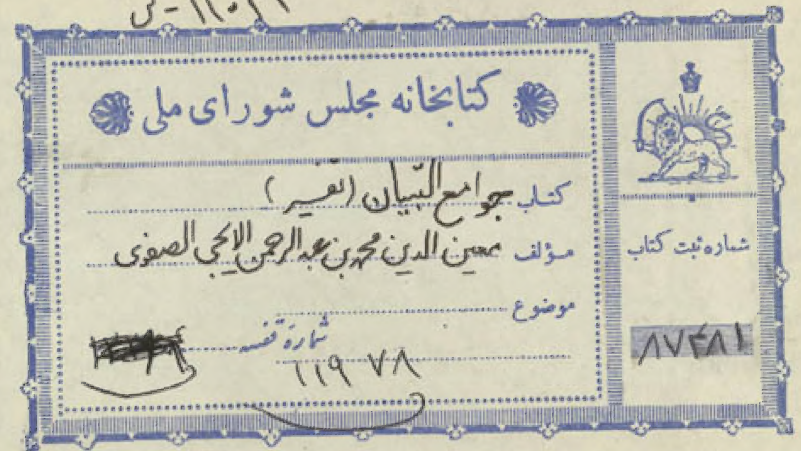 کتابخانه مجلس شورای ملی
کتاب جوامع التبیان (تفسیر)
مؤلف معین الدین محمد بن عبدالرحمن الایجی الصفوی
موضوع
شمارهٔ قفسه
۱۱۹۷۸
شماره ثبت کتاب
۸۷۴۸۱